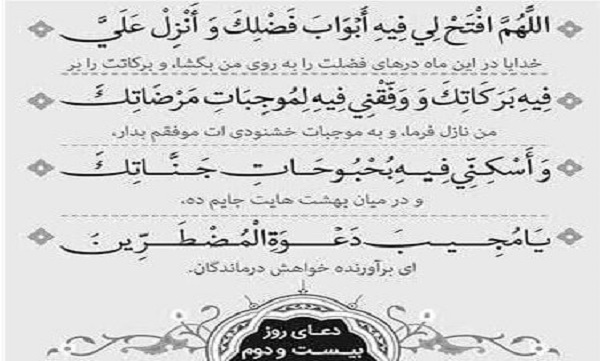 اللَّهُمَّ افْتَحْ لِي فِيهِ أَبْوَابَ فَضْلِكَ وَ أَنْزِلْ عَلَيَّ
خدایا در این ماه درهای فضلت را به روی من بگشا، و برکاتت را بر
فِيهِ بَرَكَاتِكَ وَ وَفِّقْنِي فِيهِ لِمُوجِبَاتِ مَرْضَاتِكَ
من نازل فرما، و به موجبات خشنودی ات موفقم بدار،
وَ أَسْكِنِّي فِيهِ بُحْبُوحَاتِ جَنَّاتِكَ
و در میان بهشت هایت جایم ده،
يَا مُجِيبَ دَعْوَةِ الْمُضْطَرِّينَ
ای برآورنده خواهش درماندگان.
دعای روز
بیست و دوم